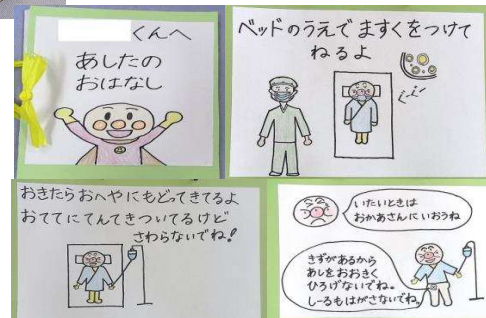 くんへ
あしたの
おはなし
ベッドのうえで ますくをつけて
ねるよ
おきたらおへやにもどってきてるよ
おててにてんてきついてるけど
さわらないでね!
いたいときは
おかあさんにいおうね
きずがあるから
あしをおおきく
ひろげないでね。
しーるもはがさないでね。